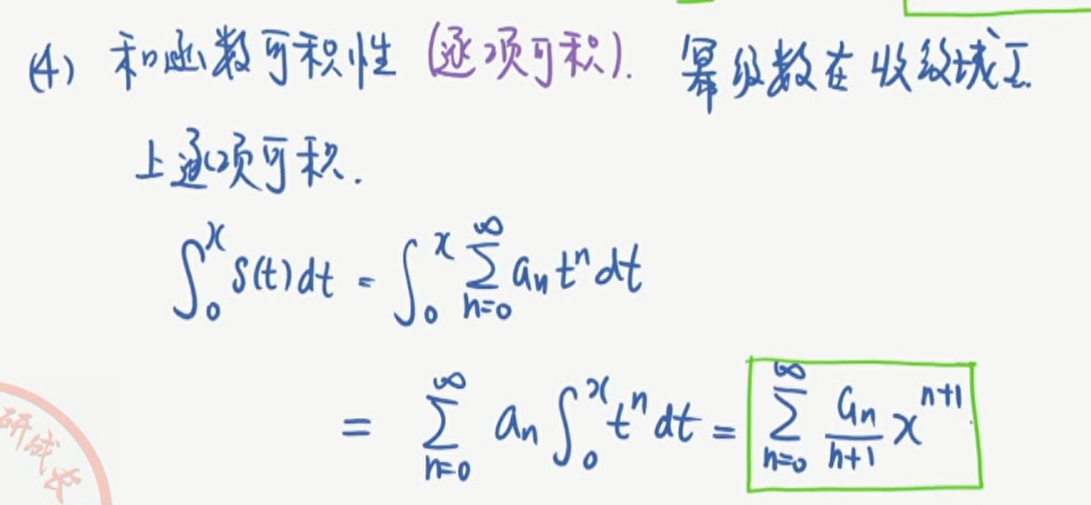 (4) 和函数可积性 (逐项可积). 幂级数在收敛域I
上逐项可积.
∫₀ˣ S(t)dt = ∫₀ˣ ∑_{n=0}^{∞} aₙ tⁿ dt
= ∑_{n=0}^{∞} aₙ ∫₀ˣ tⁿ dt = ∑_{n=0}^{∞} \frac{aₙ}{n+1} x^{n+1}
研成